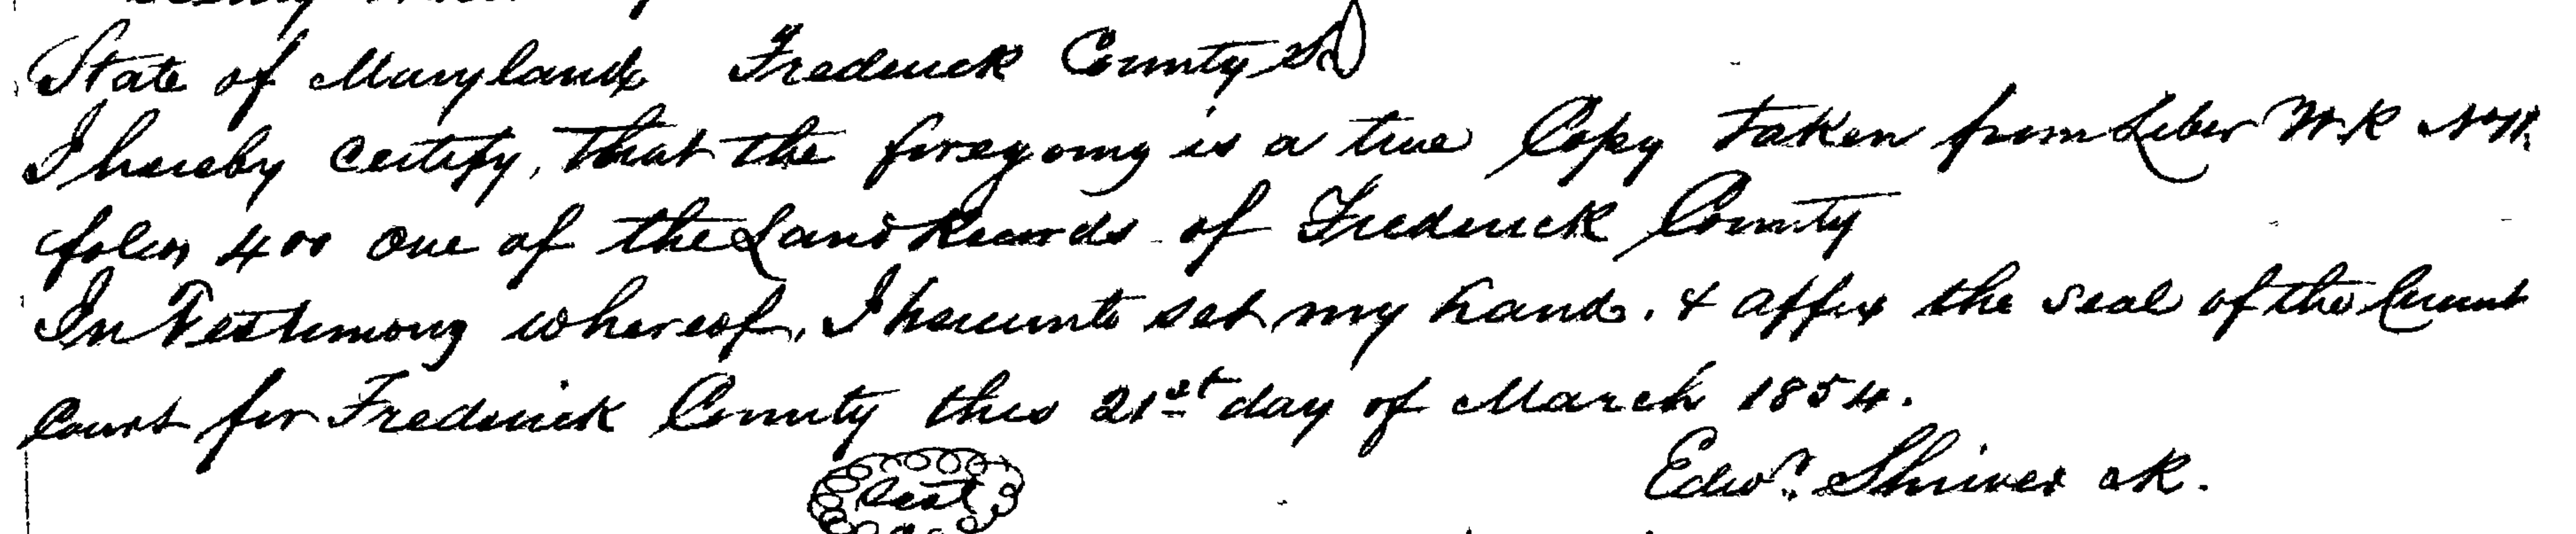 State of Maryland Frederick County Sc
I hereby Certify, That the foregoing is a true Copy taken from Liber W.R No 11.
folio 400 one of the Land Records of Frederick County
In Testimony whereof, I hereunto set my hand. & affix the seal of the Circuit
Court for Frederick County this 21st day of March 1854.
Seal
Edwd. Shriver Clk.